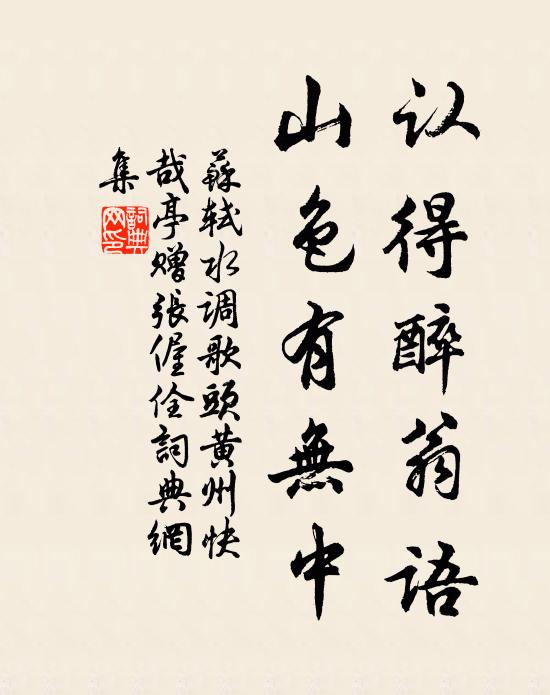 认得醉翁语
山色有無中
蘇轼水调歌頭黄州快
哉亭赠張偓佺詞典網
集
詞典
网印